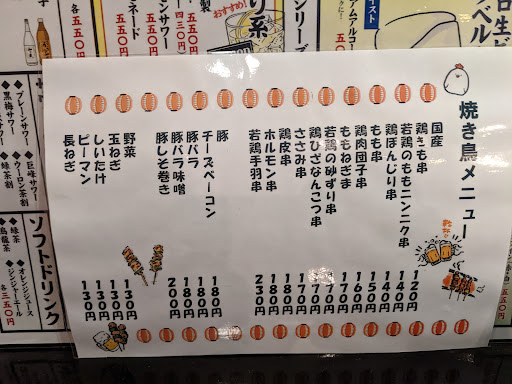 焼き鳥メニュー
国産
鶏きも串 120円
若鶏のももニンニク串 140円
鶏ぼんじり串 140円
もも串 150円
鶏肉団子串 160円
ももねぎま 170円
若鶏の砂ずり串 170円
鶏ひざなんこつ串 170円
ささみ串 170円
鶏皮串 180円
ホルモン串 180円
若鶏手羽串 230円
豚
チーズベーコン 180円
豚バラ 180円
豚バラ味噌 180円
豚しそ巻き 200円
野菜
玉ねぎ 130円
しいたけ 130円
ピーマン 130円
長ねぎ 130円
おすすめ!
り系
ンリーズ
430円
サワー
550円
ネード
550円
プレーンサワー
黒梅サワー
巨峰サワー
ウーロン茶割
緑茶割
ソフトドリンク
緑茶
烏龍茶
オレンジジュース
ジンジャーエール
各350円